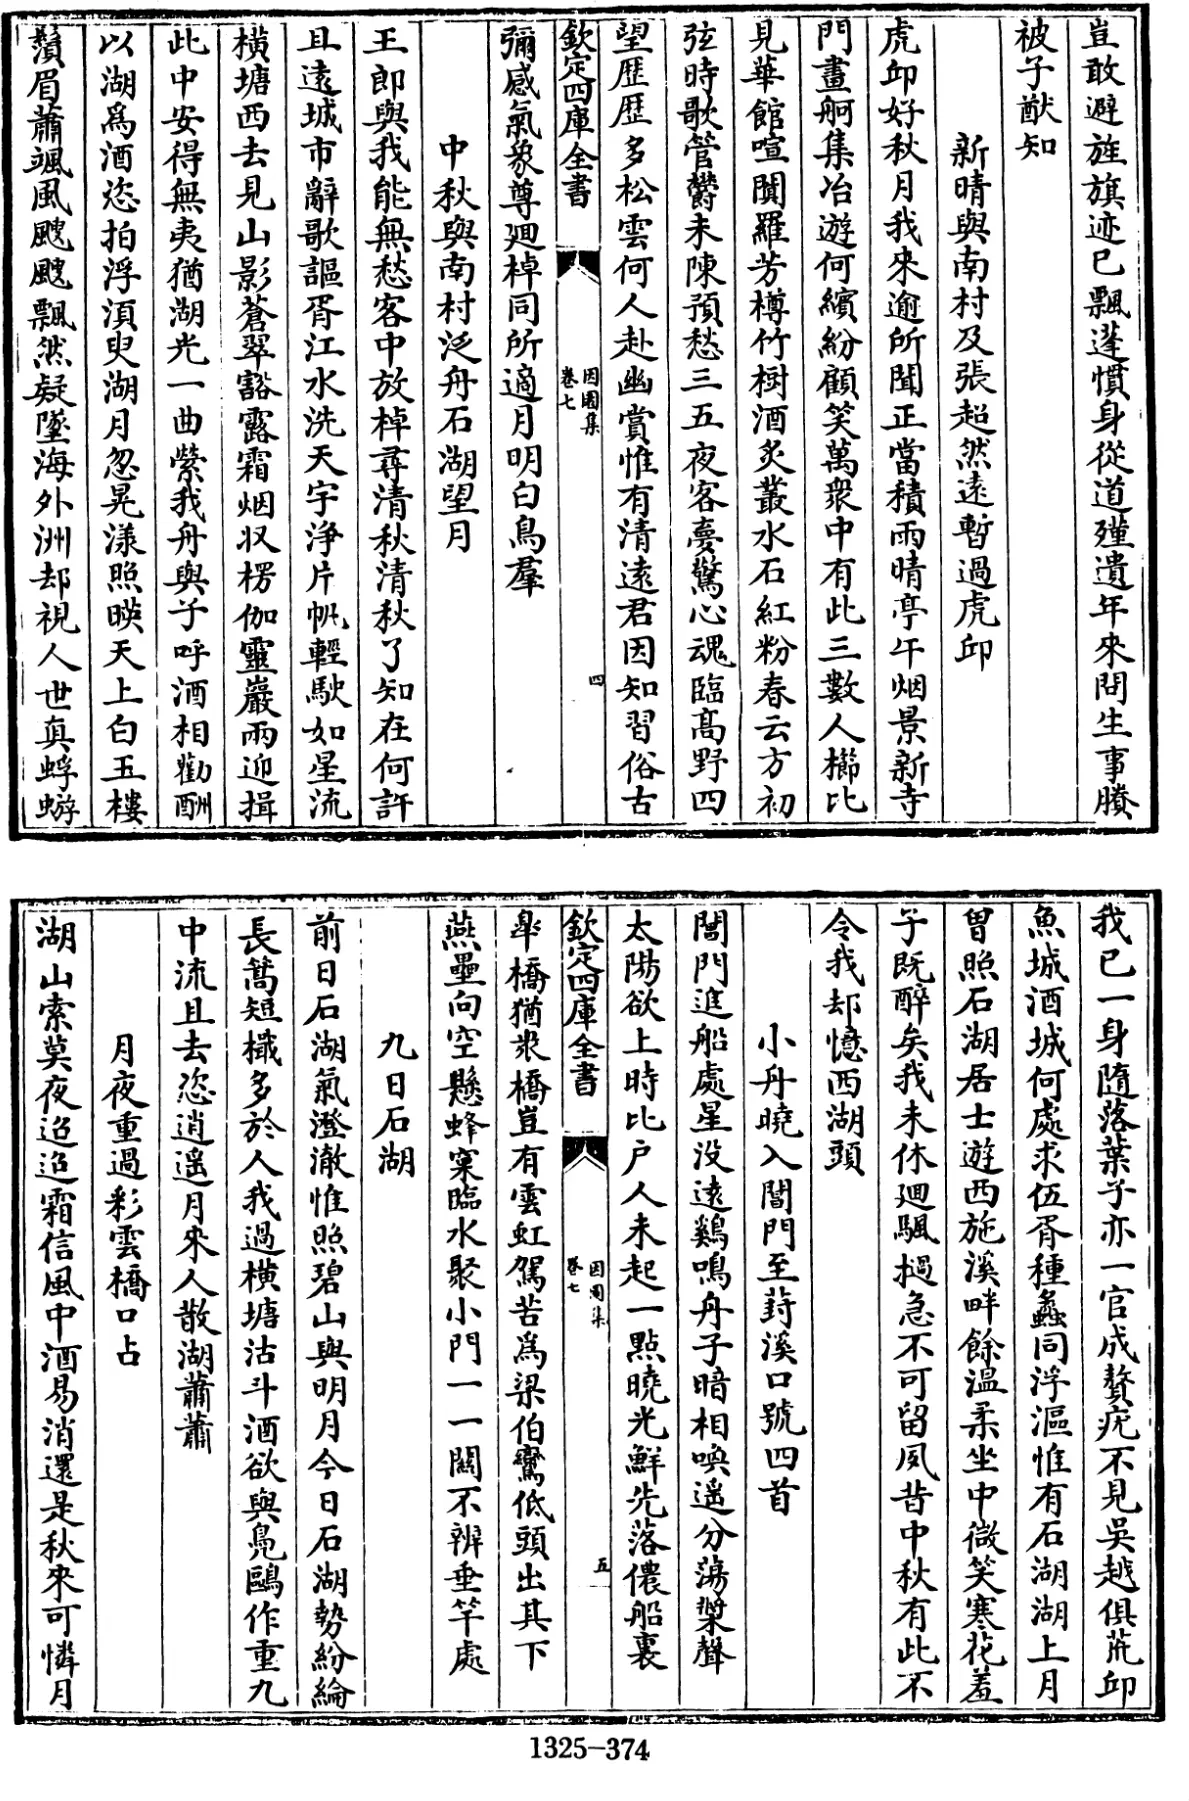 豈敢避旌旗迹已飄蓬慣身從道殣遺年來問生事賸
被子猷知
新晴與南村及張超然遠暫過虎邱
虎邱好秋月我來逾所聞正當積雨晴亭午烟景新寺
門畫舸集冶遊何繽紛顧笑萬衆中有此三數人櫛比
見華館喧闐羅芳樽竹樹酒炙叢水石紅粉春云方初
弦時歌管鬱未陳預愁三五夜客夢驚心魂臨髙野四
望歴歴多松雲何人赴幽賞惟有清遠君因知習俗古
欽定四庫全書
因園集
卷七
四
彌感氣象尊廻棹同所適月明白鳥羣
中秋與南村泛舟石湖望月
王郎與我能無愁客中放棹尋清秋清秋了知在何許
且遠城市辭歌謳胥江水洗天宇浄片帆輕駛如星流
横塘西去見山影蒼翠豁露霜烟収楞伽靈巖兩迎揖
此中安得無夷猶湖光一曲縈我舟與子呼酒相勸酬
以湖為酒恣拍浮湏臾湖月忽晃漾照暎天上白玉樓
鬚眉蕭颯風颼颼飄然疑墜海外洲却視人世真蜉蝣
我已一身隨落葉子亦一官成贅疣不見吳越俱荒邱
魚城酒城何處求伍胥種蠡同浮漚惟有石湖湖上月
曽照石湖居士遊西施溪畔餘温柔坐中微笑寒花羞
子既醉矣我未休廻颿撾急不可留夙昔中秋有此不
令我却憶西湖頭
小舟曉入閶門至葑溪口號四首
閶門進船處星没逺鷄鳴舟子暗相唤遥分蕩槳聲
太陽欲上時比户人未起一點曉光鮮先落儂船裏
欽定四庫全書
因園集
卷七
五
臯橋猶衆橋豈有雲虹駕苦為梁伯鸞低頭出其下
燕壘向空懸蜂窠臨水聚小門一一闗不辨垂竿處
九日石湖
前日石湖氣澄澈惟照碧山與明月今日石湖勢紛綸
長篙短檝多於人我過横塘沽斗酒欲與鳬鷗作重九
中流且去恣逍遥月來人散湖蕭蕭
月夜重過彩雲橋口占
湖山索莫夜迢迢霜信風中酒易消還是秋來可憐月
1325-374